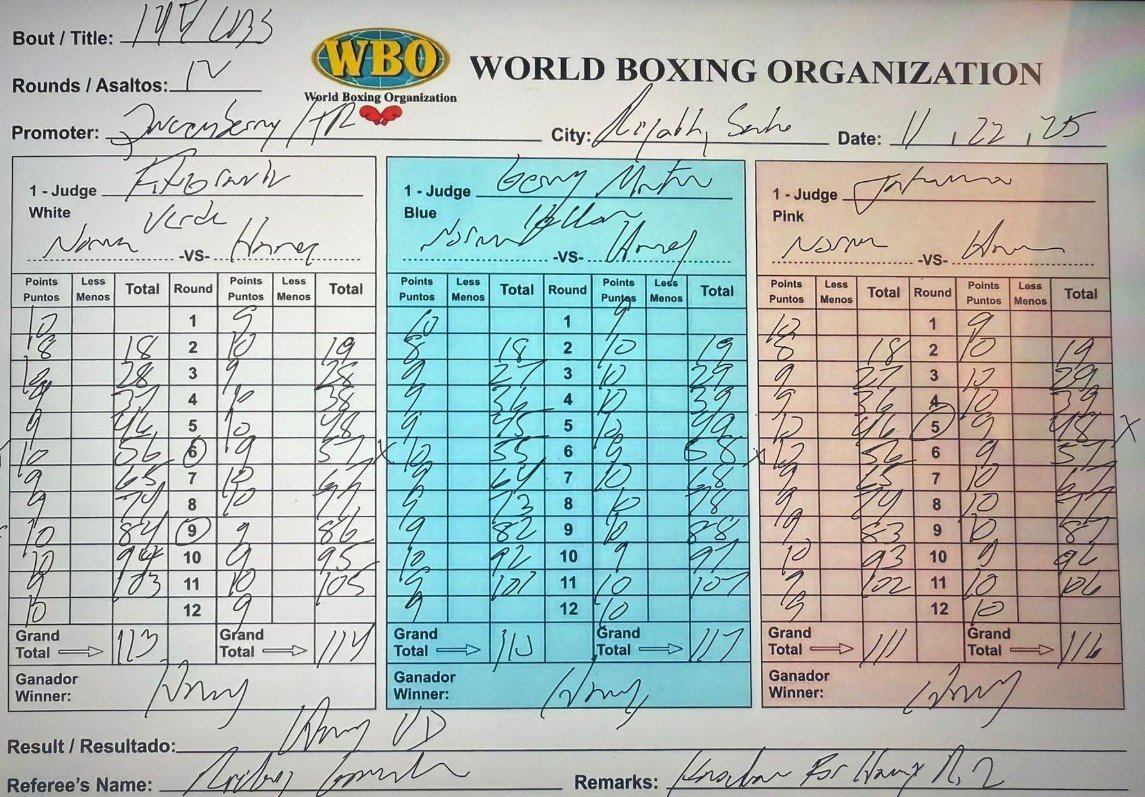 Bout / Title: 147 LBS
Rounds / Asaltos: 12
WBO
World Boxing Organization
WORLD BOXING ORGANIZATION
Promoter: Queensberry City: Date: 11, 22, 25
1 - Judge
White
Norman -VS- Haney
Points Puntos Less Menos Total Round Points Puntos Less Menos Total
10 1 9
8 18 2 10 19
10 28 3 9 28
9 37 4 10 38
9 46 5 10 48
10 56 6 9 57 X
9 65 7 10 67
9 74 8 10 77
10 84 9 9 86
10 94 10 9 95
9 103 11 10 105
10 12 9
Grand Total 113 Grand Total 114
Ganador
Winner: Haney
1 - Judge
Blue
Norman -VS- Haney
Points Puntos Less Menos Total Round Points Puntos Less Menos Total
10 1 9
8 18 2 10 19
9 27 3 10 29
9 36 4 10 39
9 45 5 10 49
10 55 6 9 58 X
9 64 7 10 68
9 73 8 10 78
9 82 9 10 88
10 92 10 9 97
9 101 11 10 107
9 12 10
Grand Total 110 Grand Total 117
Ganador
Winner: Haney
1 - Judge
Pink
Norman -VS-
Points Puntos Less Menos Total Round Points Puntos Less Menos Total
10 1 9
8 18 2 10 19
9 27 3 10 29
9 36 4 10 39
10 46 5 9 48 X
10 56 6 9 57
9 65 7 10 67
9 74 8 10 77
9 83 9 10 87
10 93 10 9 96
9 102 11 10 106
9 12 10
Grand Total 111 Grand Total 116
Ganador
Winner: Haney
Result / Resultado: Haney UD
Referee's Name: Remarks: For Haney R. 2